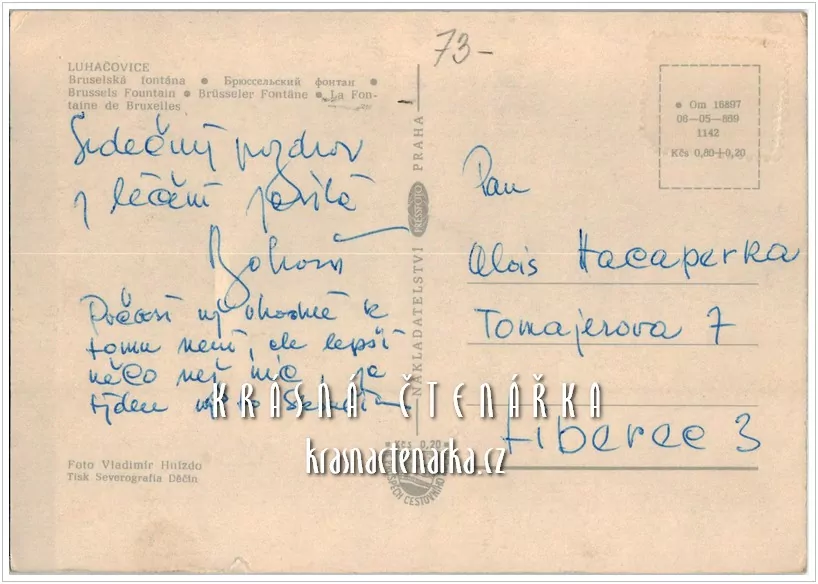 73-
LUHAČOVICE
Bruselská fontána ● Брюссельский фонтан ●
Brussels Fountain ● Brüsseler Fontäne ● La Fon-
taine de Bruxelles
Srdečný pozdrav
z léčení posílá
Počasí
k
tomu není, ale lepší
něco než nic, je
týden
Foto Vladimír Hnízdo
Tisk Severografia Děčín
NAKLADATELSTVÍ PRESSFOTO PRAHA
● Om 15897
06—05—889
1142
Kčs 0,80+0,20
Pan
Alois Hacaperka
Tomajerova 7
Liberec 3
KRÁSNÁ ČTENÁŘKA
* Kčs 0,20 *
krasnactenarka.cz